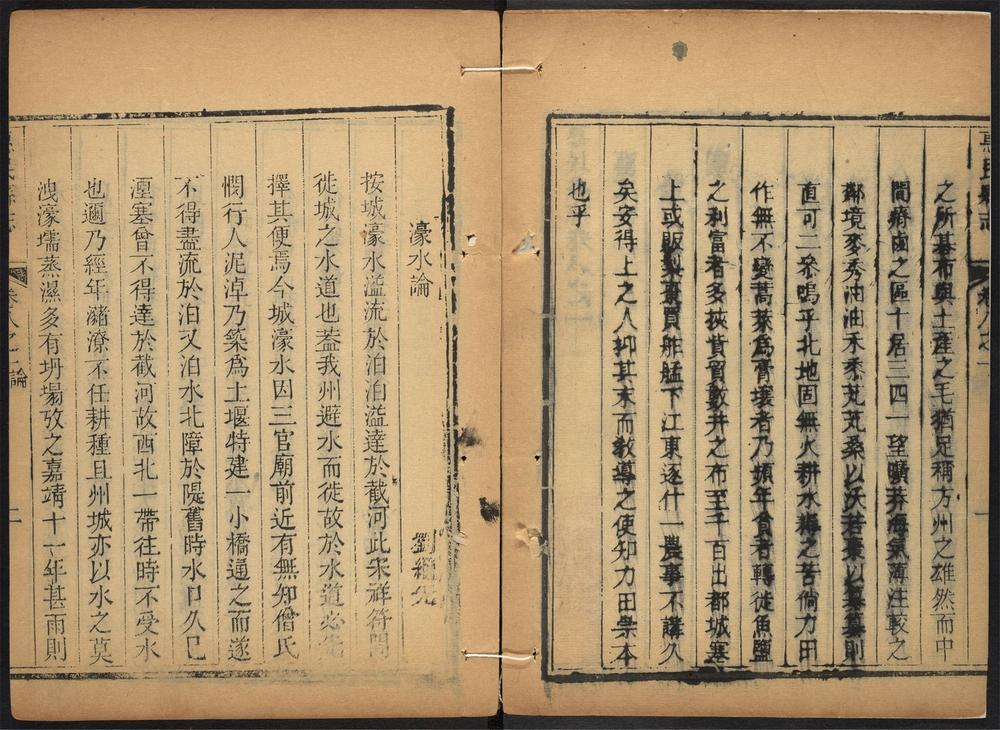 之所棊布與土產之毛猶足稱方州之雄然而中
間瘠鹵之區十居三四一望曠莽海氣薄注較之
鄰境麥秀油油禾黍芃芃桑以沃若棗以纂纂則
直可二叅嗚乎北地固無火耕水耨之苦倘力田
作無不變蒿萊爲膏壤者乃頻年貪者轉徙魚鹽
之利富者多挾貲貿數井之布至千百出都城塞
上或販梨棗買舴艋下江東逐什一農事不講久
矣安得上之人抑其末而教導之使知力田崇本
也乎
卷八之一
濠水論
劉繼先
按城濠水溢流於泊泊溢達於截河此宋祥符間
徙城之水道也葢我州避水而徙故於水道必先
擇其便焉今城濠水因三官廟前近有無知僧氏
憫行人泥淖乃築爲土堰特建一小橋通之而遂
不得盡流於泊又泊水北障於隄舊時水口久已
湮塞曾不得達於截河故西北一帶往時不受水
也邇乃經年瀦潦不任耕種且州城亦以水之莫
洩濠壖蒸濕多有坍塌攷之嘉靖十一年甚雨則
論
二